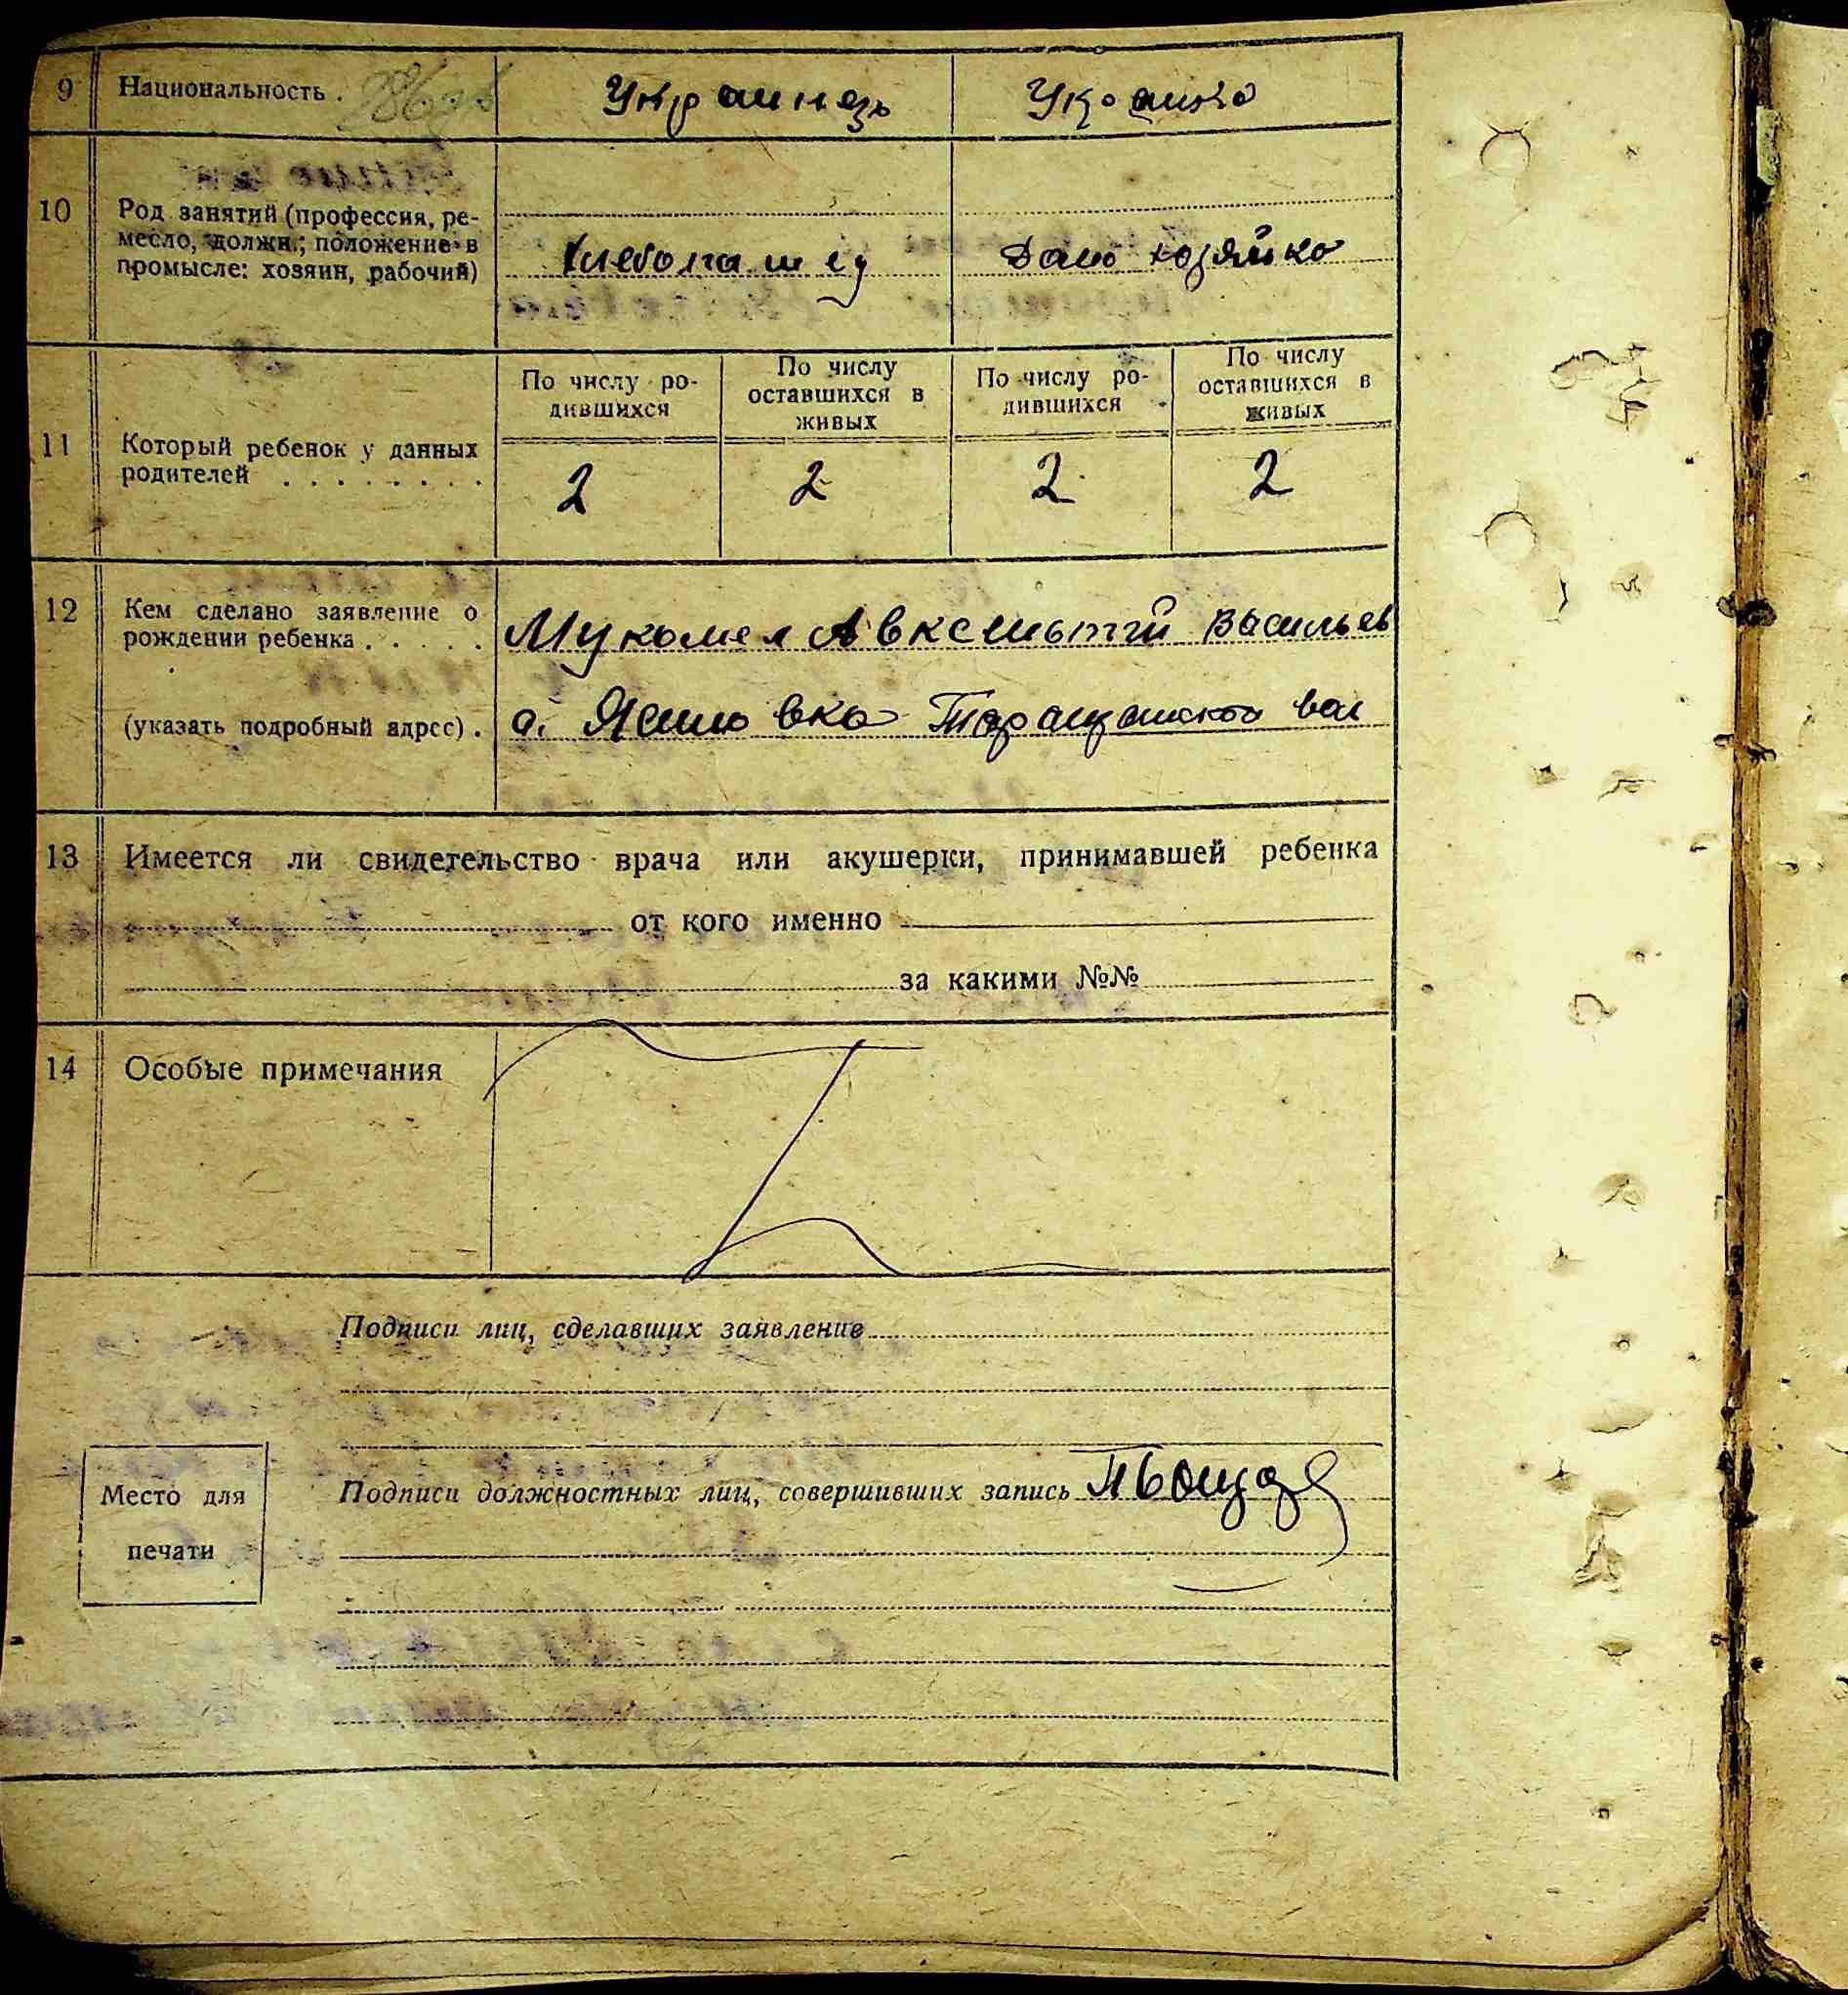 9 Национальность . Украинезь Украинка
10 Род занятий (профессия, ре-
месло, должн.; положение в
промысле: хозяин, рабочий)
Хлебопашец Домохозяйка
11 Который ребенок у данных
родителей . . . . . . . .
По числу ро-
дившихся
По числу
оставшихся в
живых
По числу ро-
дившихся
По числу
оставшихся в
живых
2 2 2 2
12 Кем сделано заявление о
рождении ребенка . . . . .
Мукомел Авксентий Васильев
(указать подробный адрес) . с. Ясиновка Таращанской вол
13 Имеется ли свидетельство врача или акушерки, принимавшей ребенка
от кого именно
за какими №№
14 Особые примечания
Подписи лиц, сделавших заявление
Место для
печати
Подписи должностных лиц, совершивших запись